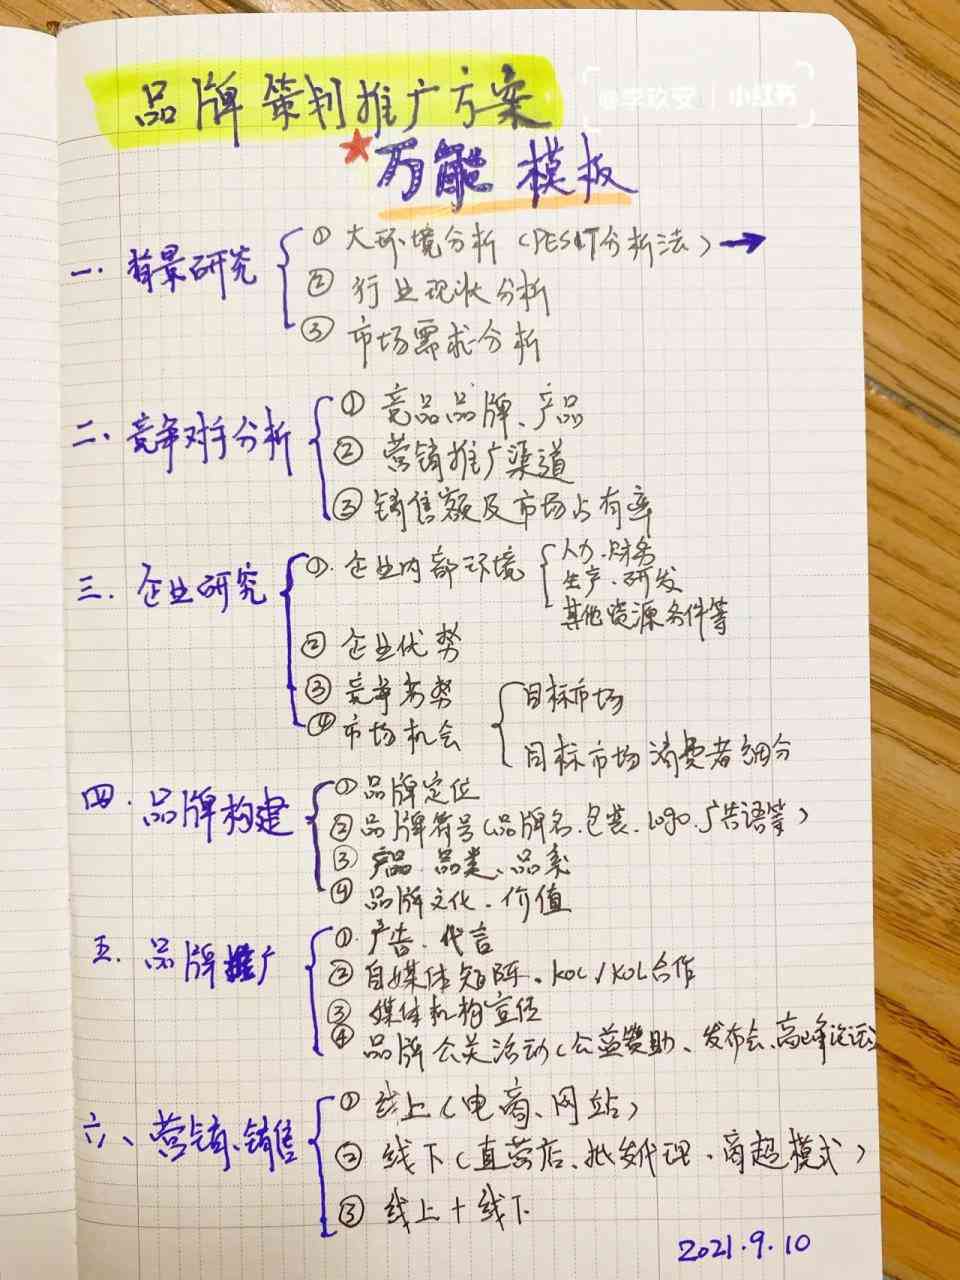 品牌策划推广方案
@李玖安 | 小红书
万能模板
一. 背景研究
① 大环境分析（PEST分析法）→
② 行业现状分析
③ 市场需求分析
二. 竞争对手分析
① 竞品品牌、产品
② 营销推广渠道
③ 销售额及市场占有率
三. 企业研究
①. 企业内部环境
人力.财务
生产.研发
其他资源条件等
② 企业优势
③ 竞争劣势
④ 市场机会
目标市场
目标市场消费者细分
四. 品牌构建
① 品牌定位
② 品牌符号（品牌名.包装.logo.广告语等）
③ 产品.品类、品系
④ 品牌文化.价值
五. 品牌推广
①. 广告.代言
② 自媒体矩阵.KOC/KOL合作
③ 媒体机构宣传
④ 品牌公关活动（公益赞助、发布会、高峰论坛）
六、营销、销售
① 线上（电商、网站）
② 线下（直营店、批发代理.商超模式）
③ 线上+线下
2021.9.10